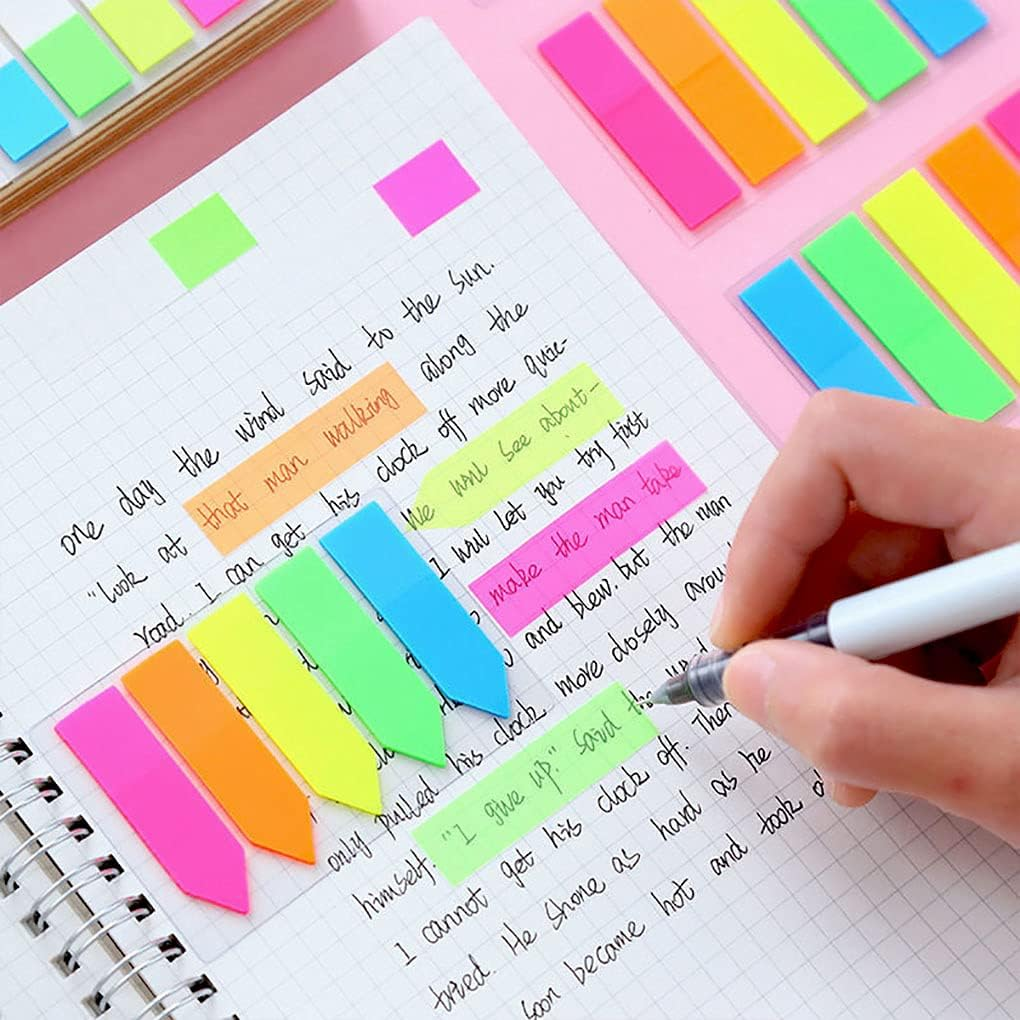 one day the wind said to the sun.
"Look at that man walking along the
road. I can get his clock off more quic-
We will see about—
I will let you try first
make the man take
and blew. but the man
only pulled his clock more closely arou
himself. "I give up." said the
I cannot get his clock off.
tried. He shone as hard as he
soon became hot and took